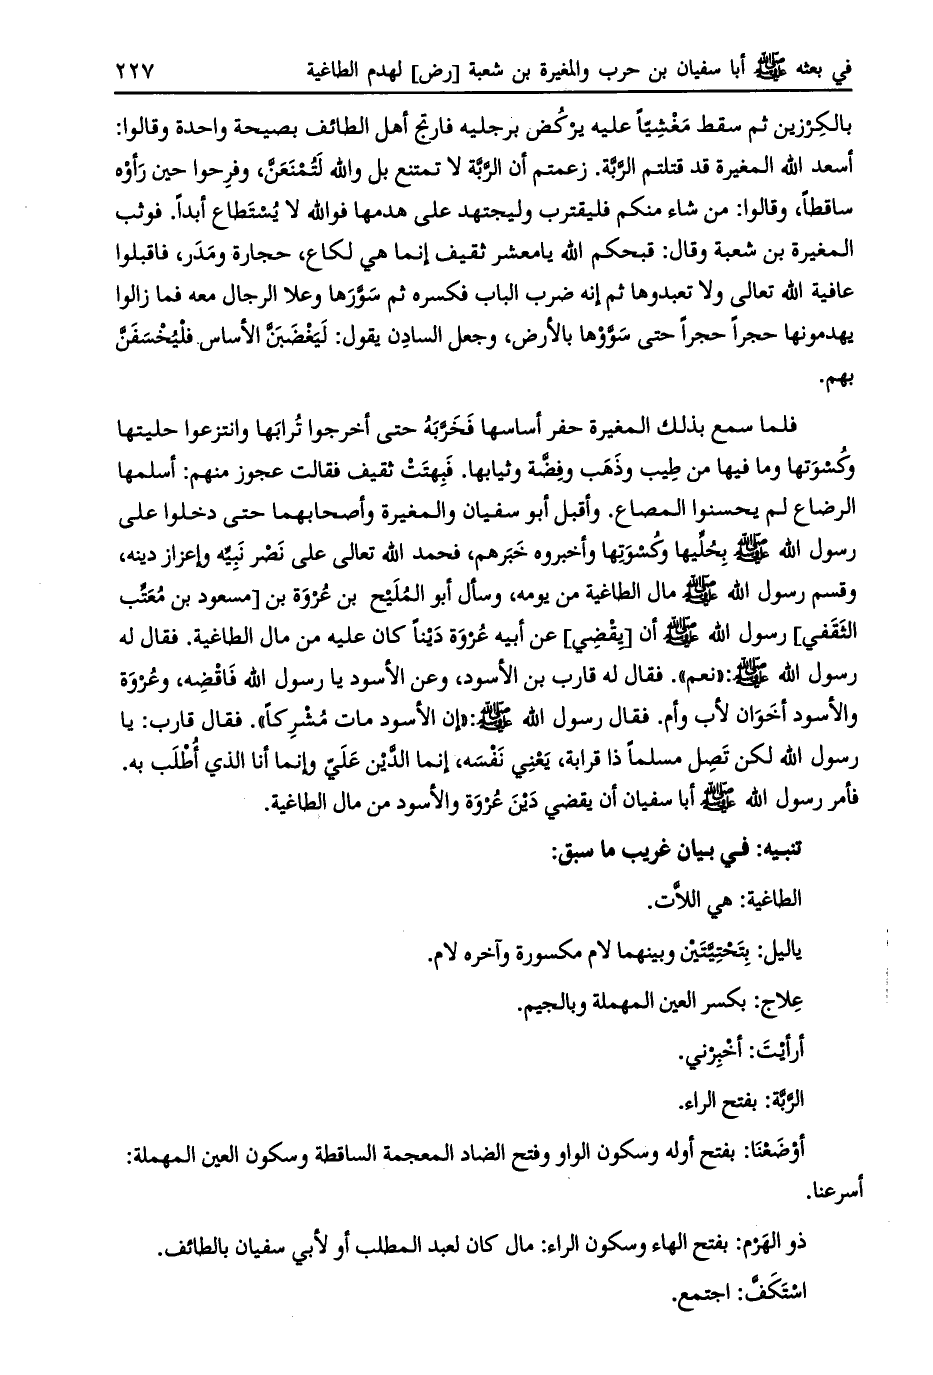 في بعثه ﷺ أبا سفيان بن حرب والمغيرة بن شعبة [رض] لهدم الطاغية ٢٢٧
بالكِرْزين ثم سقط مَغْشِيّاً عليه يرْكُض برجليه فارتج أهل الطائف بصيحة واحدة وقالوا:
أسعد الله المغيرة قد قتلتم الرَّبَّة. زعمتم أن الرَّبَّة لا تمتنع بل والله لَتُمْنَعَنَّ، وفرِحوا حين رَأَوْه
ساقطاً، وقالوا: من شاء منكم فليقترب وليجتهد على هدمها فوالله لا يُسْتَطاع أبداً. فوثب
المغيرة بن شعبة وقال: قبحكم الله يامعشر ثقيف إنما هي لكاع، حجارة ومَدَر، فاقبلوا
عافية الله تعالى ولا تعبدوها ثم إنه ضرب الباب فكسره ثم سَوَّرَها وعلا الرجال معه فما زالوا
يهدمونها حجراً حجراً حتى سَوَّوْها بالأرض، وجعل السادِن يقول: لَيَغْضَبَنَّ الأساس فلْيُخْسَفَنَّ
بهم.
فلما سمع بذلك المغيرة حفر أساسها فَخَرَّبَهُ حتى أخرجوا تُرابَها وانتزعوا حليتها
وكُسْوَتها وما فيها من طِيب وذَهَب وفِضَّة وثيابها. فَبِهتَتْ ثقيف فقالت عجوز منهم: أسلمها
الرضاع لم يحسنوا المصاع. وأقبل أبو سفيان والمغيرة وأصحابهما حتى دخلوا على
رسول الله ﷺ بِحُلِّيها وكُسْوَتِها وأخبروه خَبَرهم، فحمد الله تعالى على نَصْر نَبِيِّه وإعزاز دينه،
وقسم رسول الله ﷺ مال الطاغية من يومه، وسأل أبو المُلَيْح بن عُرْوَة بن [مسعود بن مُعَتِّب
الثَقَفي] رسول الله ﷺ أن [يِقْضِي] عن أبيه عُرْوَة دَيْناً كان عليه من مال الطاغية. فقال له
رسول الله ﷺ:«نعم». فقال له قارب بن الأسود، وعن الأسود يا رسول الله فَاقْضِه، وعُرْوَة
والأسود أخَوَان لأب وأم. فقال رسول الله ﷺ:«إن الأسود مات مُشْرِكاً». فقال قارب: يا
رسول الله لكن تَصِل مسلماً ذا قرابة، يَعْنِي نَفْسَه، إنما الدَّيْن عَلَيّ وإنما أنا الذي أُطْلَب به.
فأمر رسول الله ﷺ أبا سفيان أن يقضي دَيْنَ عُرْوَة والأسود من مال الطاغية.
تنبيه: في بيان غريب ما سبق:
الطاغية: هي اللاَّت.
ياليل: بِتَحْتِيَّتَيْن وبينهما لام مكسورة وآخره لام.
عِلاج: بكسر العين المهملة وبالجيم.
أرأيْتَ: أخْبِرْني.
الرَّبَّة: بفتح الراء.
أوْضَعْنَا: بفتح أوله وسكون الواو وفتح الضاد المعجمة الساقطة وسكون العين المهملة:
أسرعنا.
ذو الهَرْم: بفتح الهاء وسكون الراء: مال كان لعبد المطلب أو لأبي سفيان بالطائف.
اسْتَكَفَّ: اجتمع.